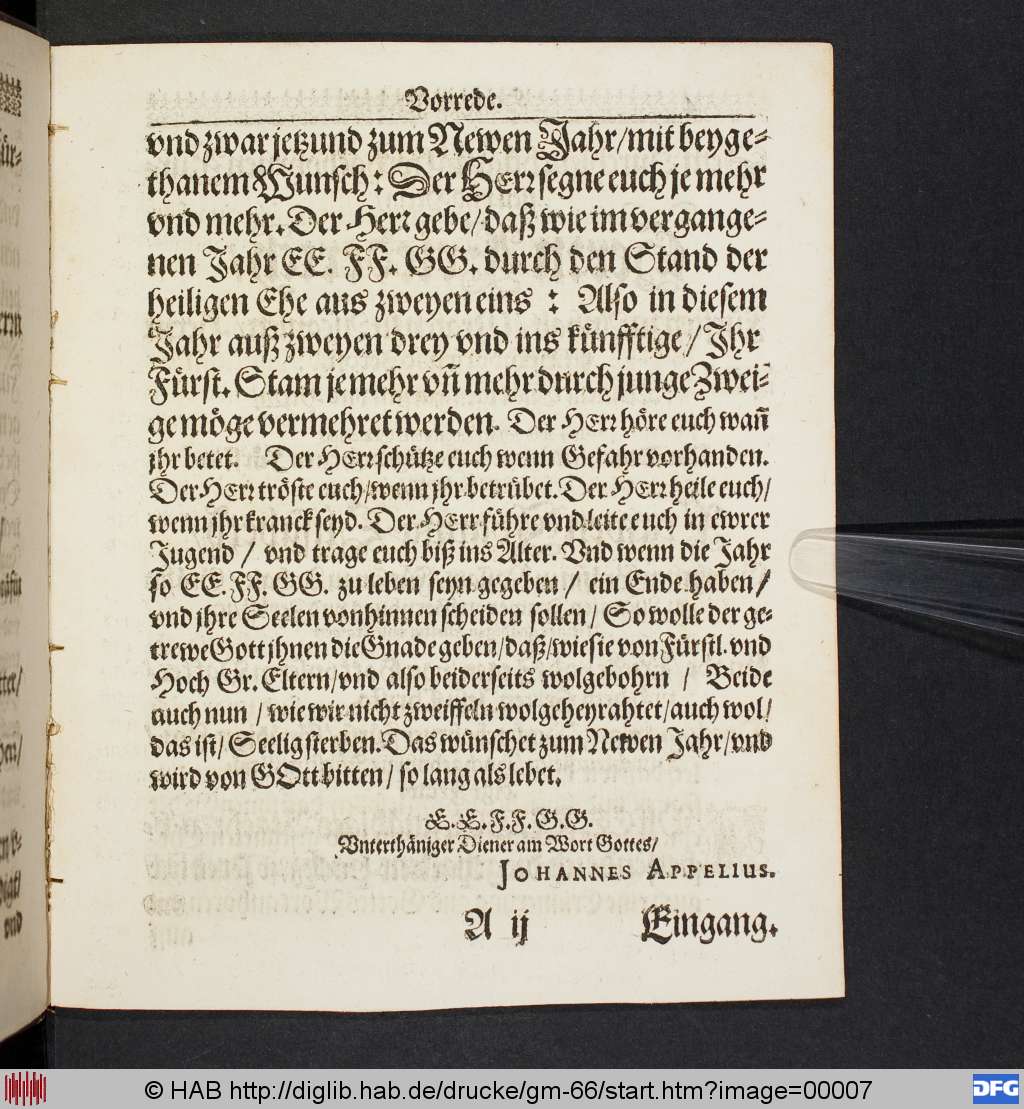 Vorrede.
vnd zwar jetzund zum Newen Jahr/mit beyge-
thanem Wunsch: Der HErr segne euch je mehr
vnd mehr. Der Herr gebe/daß wie im vergange-
nen Jahr EE. FF. GG. durch den Stand der
heiligen Ehe aus zweyen eins : Also in diesem
Jahr auß zweyen drey vnd ins künfftige/Ihr
Fürst. Stam je mehr vñ mehr durch junge Zwei-
ge möge vermehret werden. Der HErr höre euch wañ
jhr betet. Der HErr schütze euch wenn Gefahr vorhanden.
Der HErr tröste euch/wenn jhr betrübet. Der HErr heile euch/
wenn jhr kranck seyd. Der HErr führe vnd leite euch in ewrer
Jugend / vnd trage euch biß ins Alter. Vnd wenn die Jahr
so EE. FF. GG. zu leben seyn gegeben / ein Ende haben/
vnd jhre Seelen von hinnen scheiden sollen/ So wolle der ge-
trewe Gott jhnen die Gnade geben/daß/wie sie von Fürstl. vnd
Hoch Gr. Eltern/vnd also beiderseits wolgebohrn / Beide
auch nun / wie wir nicht zweiffeln wolgeheyrahtet/auch wol/
das ist/ Seelig sterben. Das wünschet zum Newen Jahr/vnd
wird von GOtt bitten/ so lang als lebet.
E. E. F. F. G. G.
Vnterthäniger Diener am Wort Gottes/
JOHANNES APPELIUS.
A ij Eingang.
© HAB http://diglib.hab.de/drucke/gm-66/start.htm?image=00007
DFG